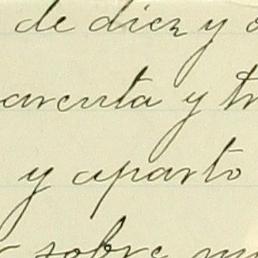 de diez y
arenta y tr
y aparto
sobre